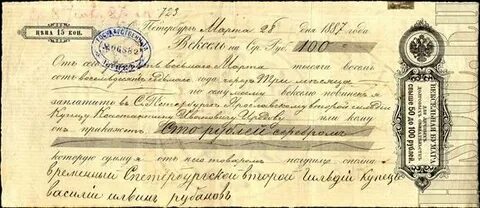 723
ЦѢНА 15 КОП.
С. Петербургъ Марта 28 дня 1887 года
Вексель на Сер. Руб. 100
Отъ сего восьмаго Марта тысяча восемь
сотъ восемьдесятъ седьмаго года черезъ Три месяца
по сему векселю повиненъ я
заплатить въ С. Петербургѣ Ярославскому второй гильдіи
Купцу Константину Ивановичу или кому
онъ прикажетъ Сто рублей серебромъ
которую сумму я отъ него товаромъ получилъ сполна
временный Спетербургской второй Гильдіи Купецъ
василий рубановъ
ВЕКСЕЛЬНАЯ БУМАГА
свыше 50 до 100 рублей.